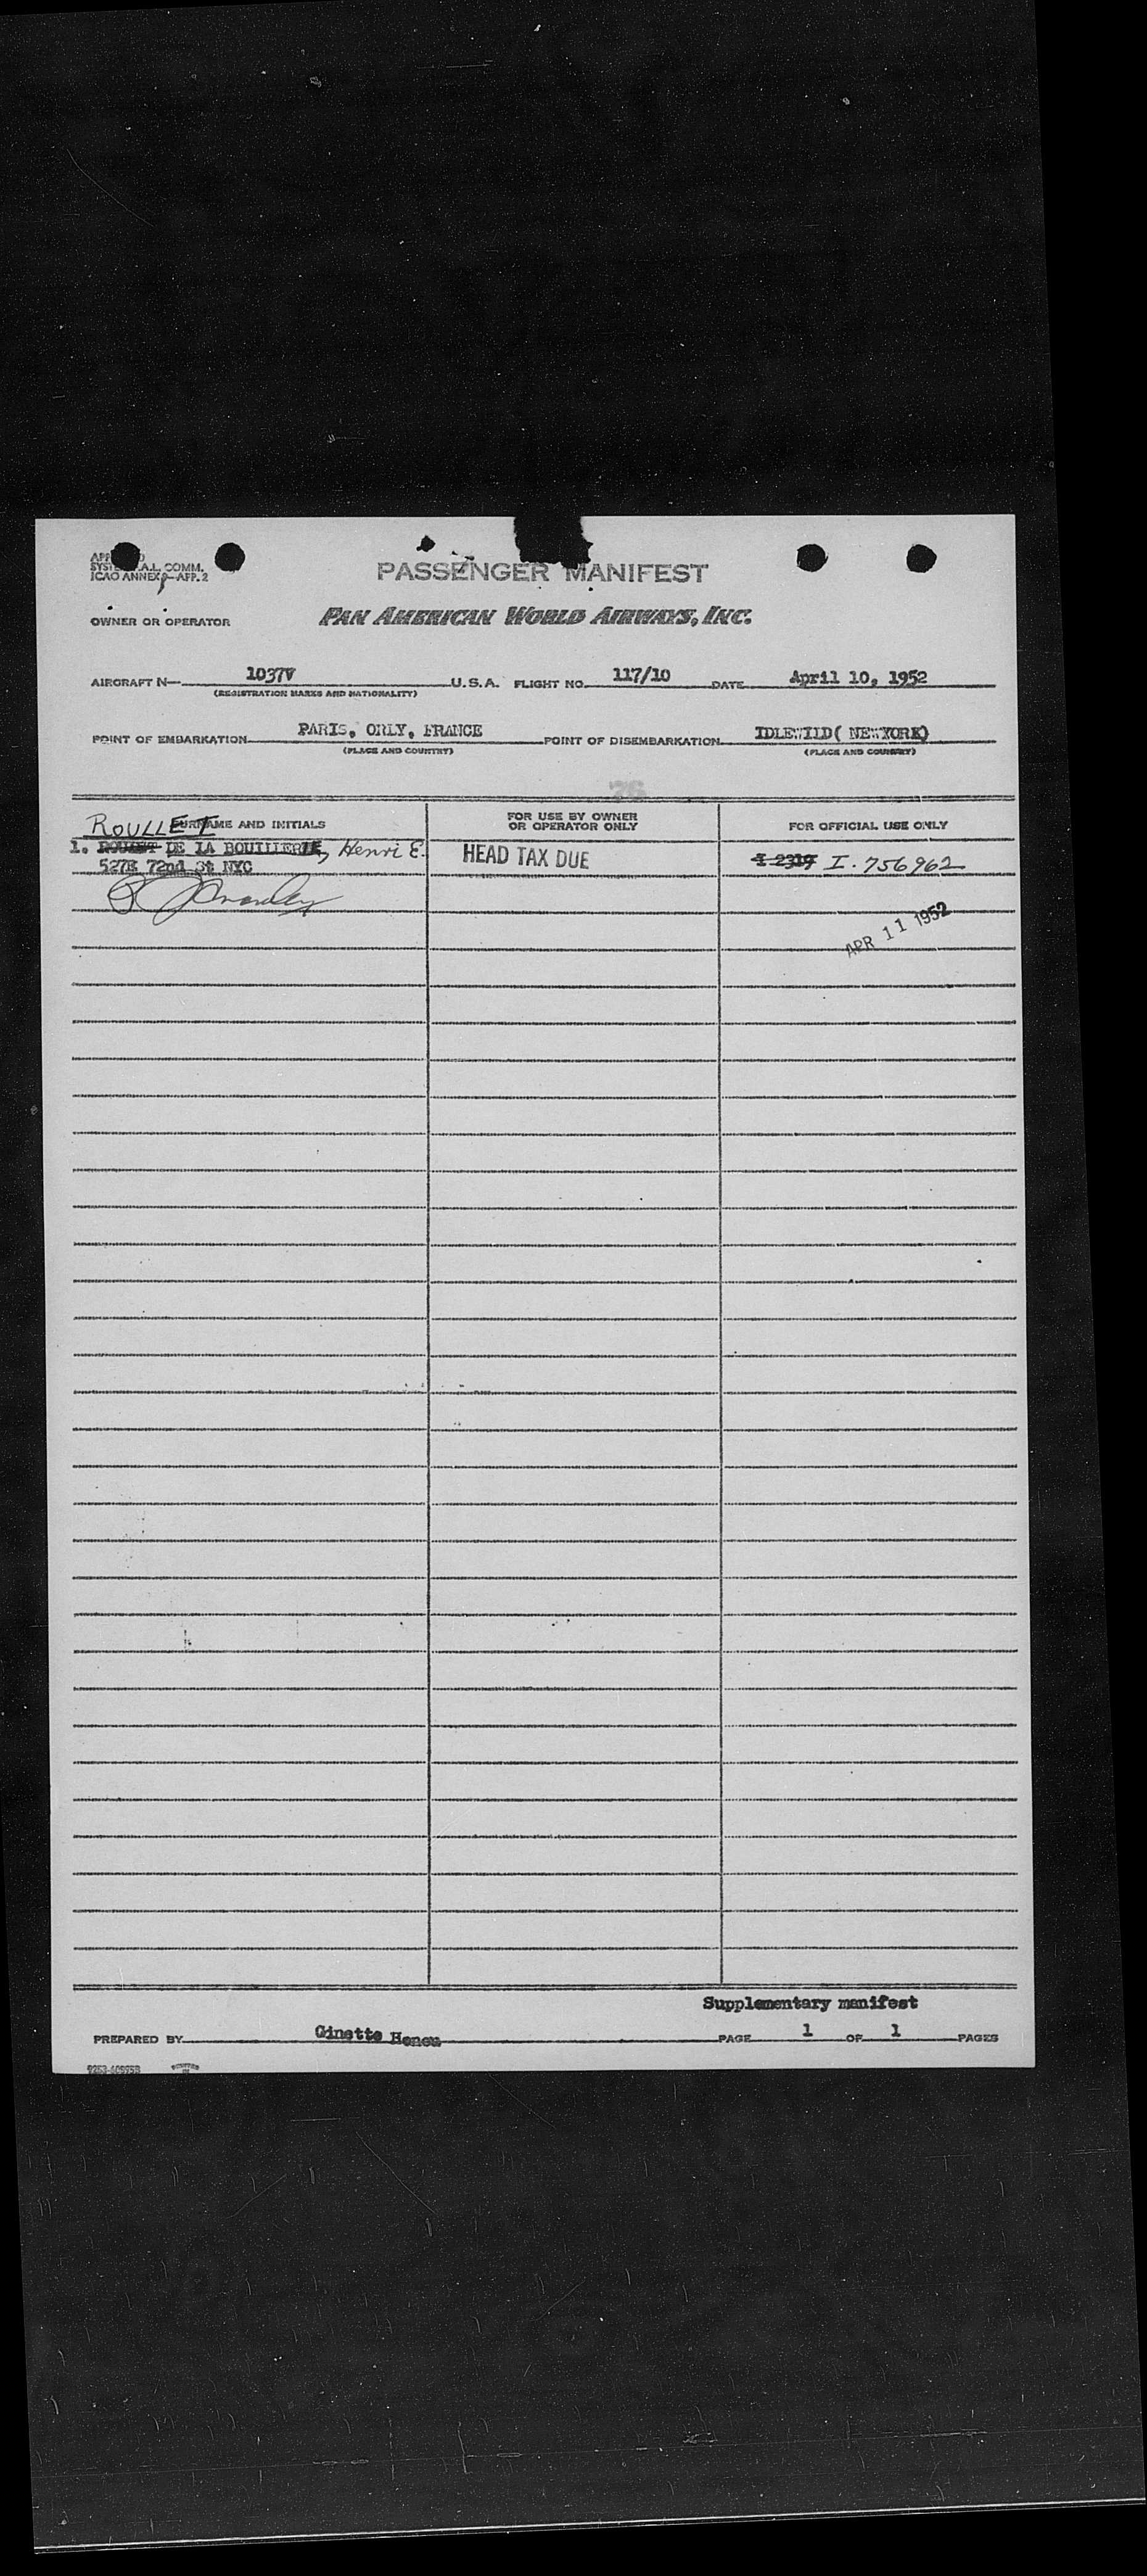 SYST A.L. COMM.
ICAO ANNEX 9—APP. 2
PASSENGER MANIFEST
OWNER OR OPERATOR PAN AMERICAN WORLD AIRWAYS, INC.
AIRCRAFT N— 1037V U.S.A. FLIGHT NO. 117/10 DATE April 10, 1952
(REGISTRATION MARKS AND NATIONALITY)
POINT OF EMBARKATION PARIS, ORLY, FRANCE POINT OF DISEMBARKATION IDLEWILD( NEWYORK)
(PLACE AND COUNTRY) (PLACE AND COUNTRY)
76
ROULLET SURNAME AND INITIALS FOR USE BY OWNER OR OPERATOR ONLY FOR OFFICIAL USE ONLY
1. DE LA BOUILLERIE, Henri E. HEAD TAX DUE I 2319 I. 756962
527E 72nd St NYC
APR 11 1952
Supplementary manifest
PREPARED BY Ginette PAGE 1 OF 1 PAGES